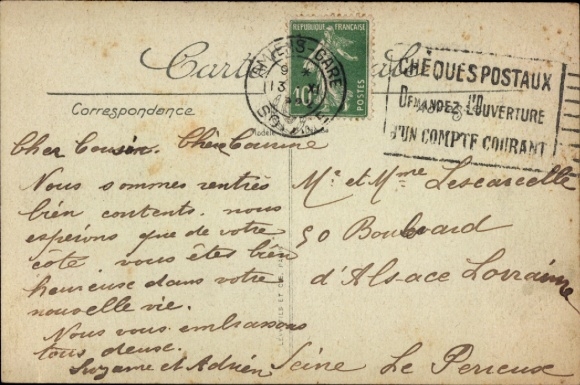 RÉPUBLIQUE FRANÇAISE
POSTES
10
AMIENS-GARE
SOMME
CHÈQUES POSTAUX
DEMANDEZ L'OUVERTURE
D'UN COMPTE COURANT
Correspondance
Cher Cousin. Chère Cousine
Nous sommes rentrés
bien contents. nous
espérons que de votre
coté vous êtes bien
heureuse dans votre
nouvelle vie.
Nous vous embrassons
tous deuse.
Suzanne et Adrien
Mr et Mme Lescarcelle
50 Boulevard
d'Alsace Lorraine
Le Perreux
Seine